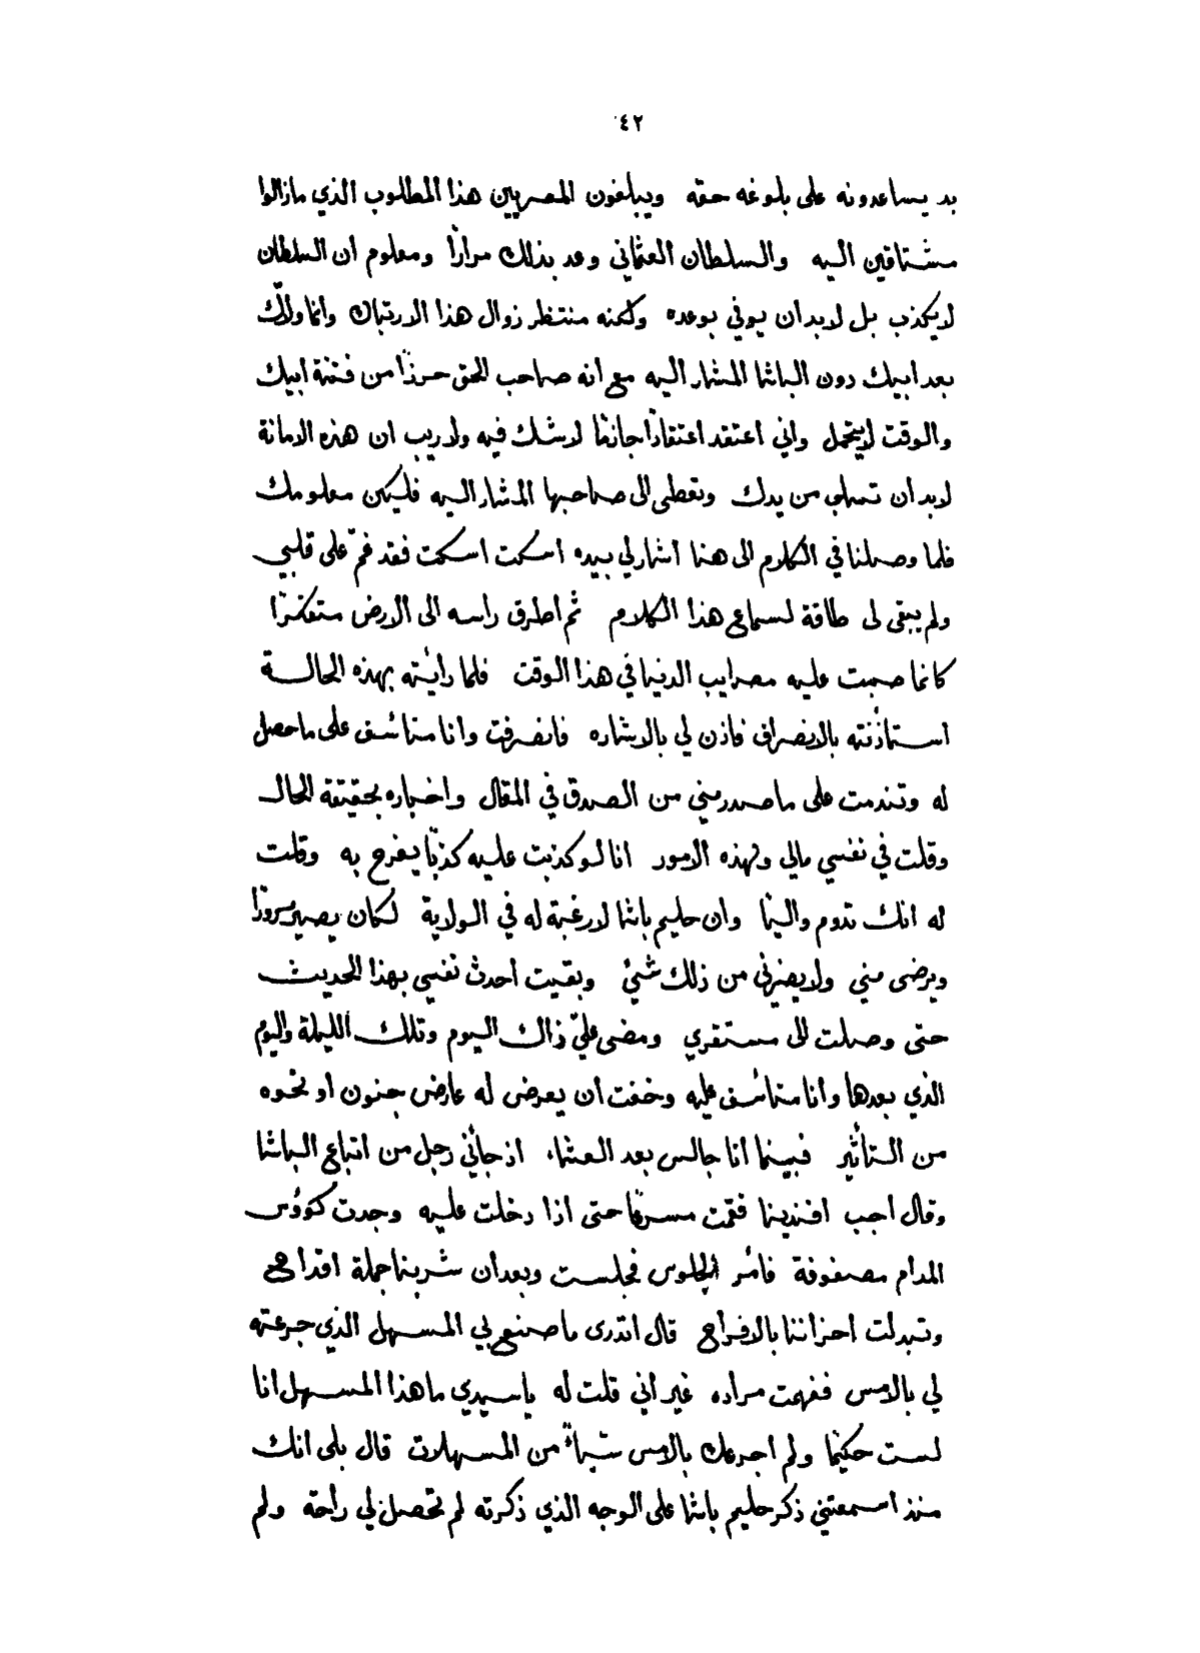 ٤٢
بد يساعدونه على بلوغه حقه ويبلغون المصريين هذا المطلوب الذي مازالوا
مشتاقين اليه والسلطان العثماني وعد بذلك مرارًا ومعلوم ان السلطان
لايكذب بل لابد ان يوفي بوعده ولكنه منتظر زوال هذا الارتباك وانما ولاك
بعد ابيك دون الباشا المشار اليه مع انه صاحب الحق حرزًا من فتنة ابيك
والوقت لايتحمل واني اعتقد اعتقادًا جازمًا لاشك فيه ولاريب ان هذه الامانة
لابد ان تسلب من يدك وتعطى الى صاحبها المشار اليه فليكن معلومك
فلما وصلنا في الكلام الى هنا اشار لي بيده اسكت اسكت فقد غمّ على قلبي
ولم يبقى لى طاقة لسماع هذا الكلام ثم اطرق راسه الى الارض متفكرًا
كانما صبت عليه مصايب الدنيا في هذا الوقت فلما رائيته بهذه الحالة
استاذنته بالانصراف فاذن لي بالاشاره فانصرفت وانا متائسف على ماحصل
له وتندمت على ماصدر مني من الصدق في المقال واخباره بحقيقة الحال
وقلت في نفسي مالي ولهذه الامور انا لو كذبت عليه كذبًا يفرح به وقلت
له انك تدوم واليًا وان حليم باشا لارغبة له في الولاية لكان يصير مسرورًا
ويرضى مني ولايضرني من ذلك شئ وبقيت أحدث نفسي بهذا الحديث
حتى وصلت الى مستقري ومضى عليّ ذاك اليوم وتلك الليلة واليوم
الذي بعدها وانا متائسف عليه وخفت ان يعرض له عارض جنون او نحوه
من التأثير فبينما انا جالس بعد العشاء اذ جائني رجل من اتباع الباشا
وقال اجب افندينا فقمت مسرعًا حتى اذا دخلت عليه وجدت كوؤس
المدام مصفوفة فائمر بالجلوس فجلست وبعد ان شربنا جملة اقداح
وتبدلت احزاننا بالافراح قال اتدرى ماصنع بي المسهل الذي جرعته
لي بالامس ففهمت مراده غير اني قلت له ياسيدي ماهذا المسهل انا
لست حكيمًا ولم اجرعك بالامس شياءً من المسهلات قال بلى انك
منذ اسمعتني ذكر حليم باشا على الوجه الذي ذكرته لم تحصل لي راحة ولم